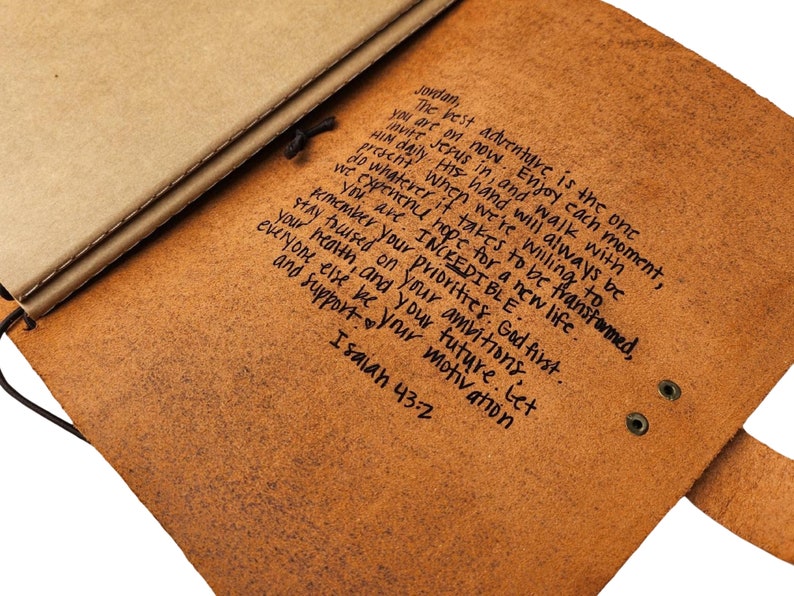 Jordan,
The best adventure is the one
you are on now. Enjoy each moment,
invite Jesus in and walk with
HIM daily. His hand will always be
present when we're willing to
do whatever it takes to be transformed,
we experience hope for a new life.
You are INCREDIBLE.
remember your priorities. God first.
stay focused on your ambitions,
your health, and your future. Let
everyone else be your motivation
and support. ♥
Isaiah 43:2